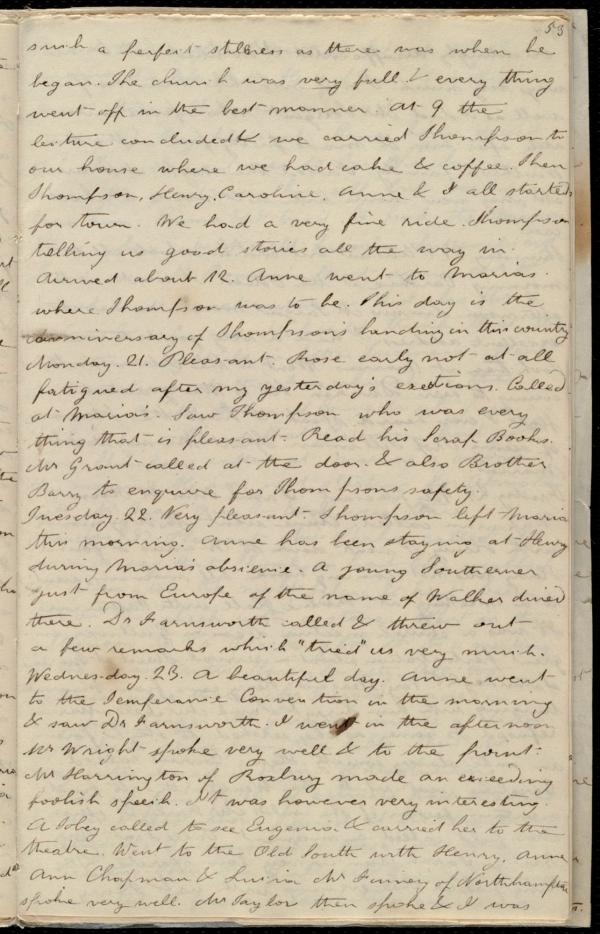 53
such a perfect stillness as there was when he
began. The church was very full & every thing
went off in the best manner. At 9 the
lecture concluded & we carried Thompson to
our house where we had cake & coffee. Then
Thompson, Henry, Caroline, Anne & I all started
for town. We had a very fine ride. Thompson
telling us good stories all the way in.
Arrived about 12. Anne went to Marias.
where Thompson was to be. This day is the
anniversary of Thompson's landing in this country
Monday. 21. Pleasant. Rose early not at all
fatigued after my yesterday's exertions. Called
at Maria's. Saw Thompson who was every
thing that is pleasant. Read his Scrap Books.
Mr Grant called at the door. & also Brother
Barry to enquire for Thompsons safety.
Tuesday. 22. Very pleasant. Thompson left Maria
this morning. Anne has been staying at Henry
during Maria's absence. A young Southerner
just from Europe of the name of Walker dined
there. Dr Farnsworth called & threw out
a few remarks which "tried" us very much.
Wednesday. 23. A beautiful day. Anne went
to the Temperance Convention in the morning
& saw Dr Farnsworth. I went in the afternoon
Mr Wright spoke very well & to the point.
Mr Harrington of Roxbury made an exceeding
foolish speech. It was however very interesting.
A Tobey called to see Eugenia & carried her to the
theatre. Went to the Old South with Henry, Anne
Ann Chapman & Lucia Mr Finney of Northhampton
spoke very well. Mr Taylor then spoke & I was